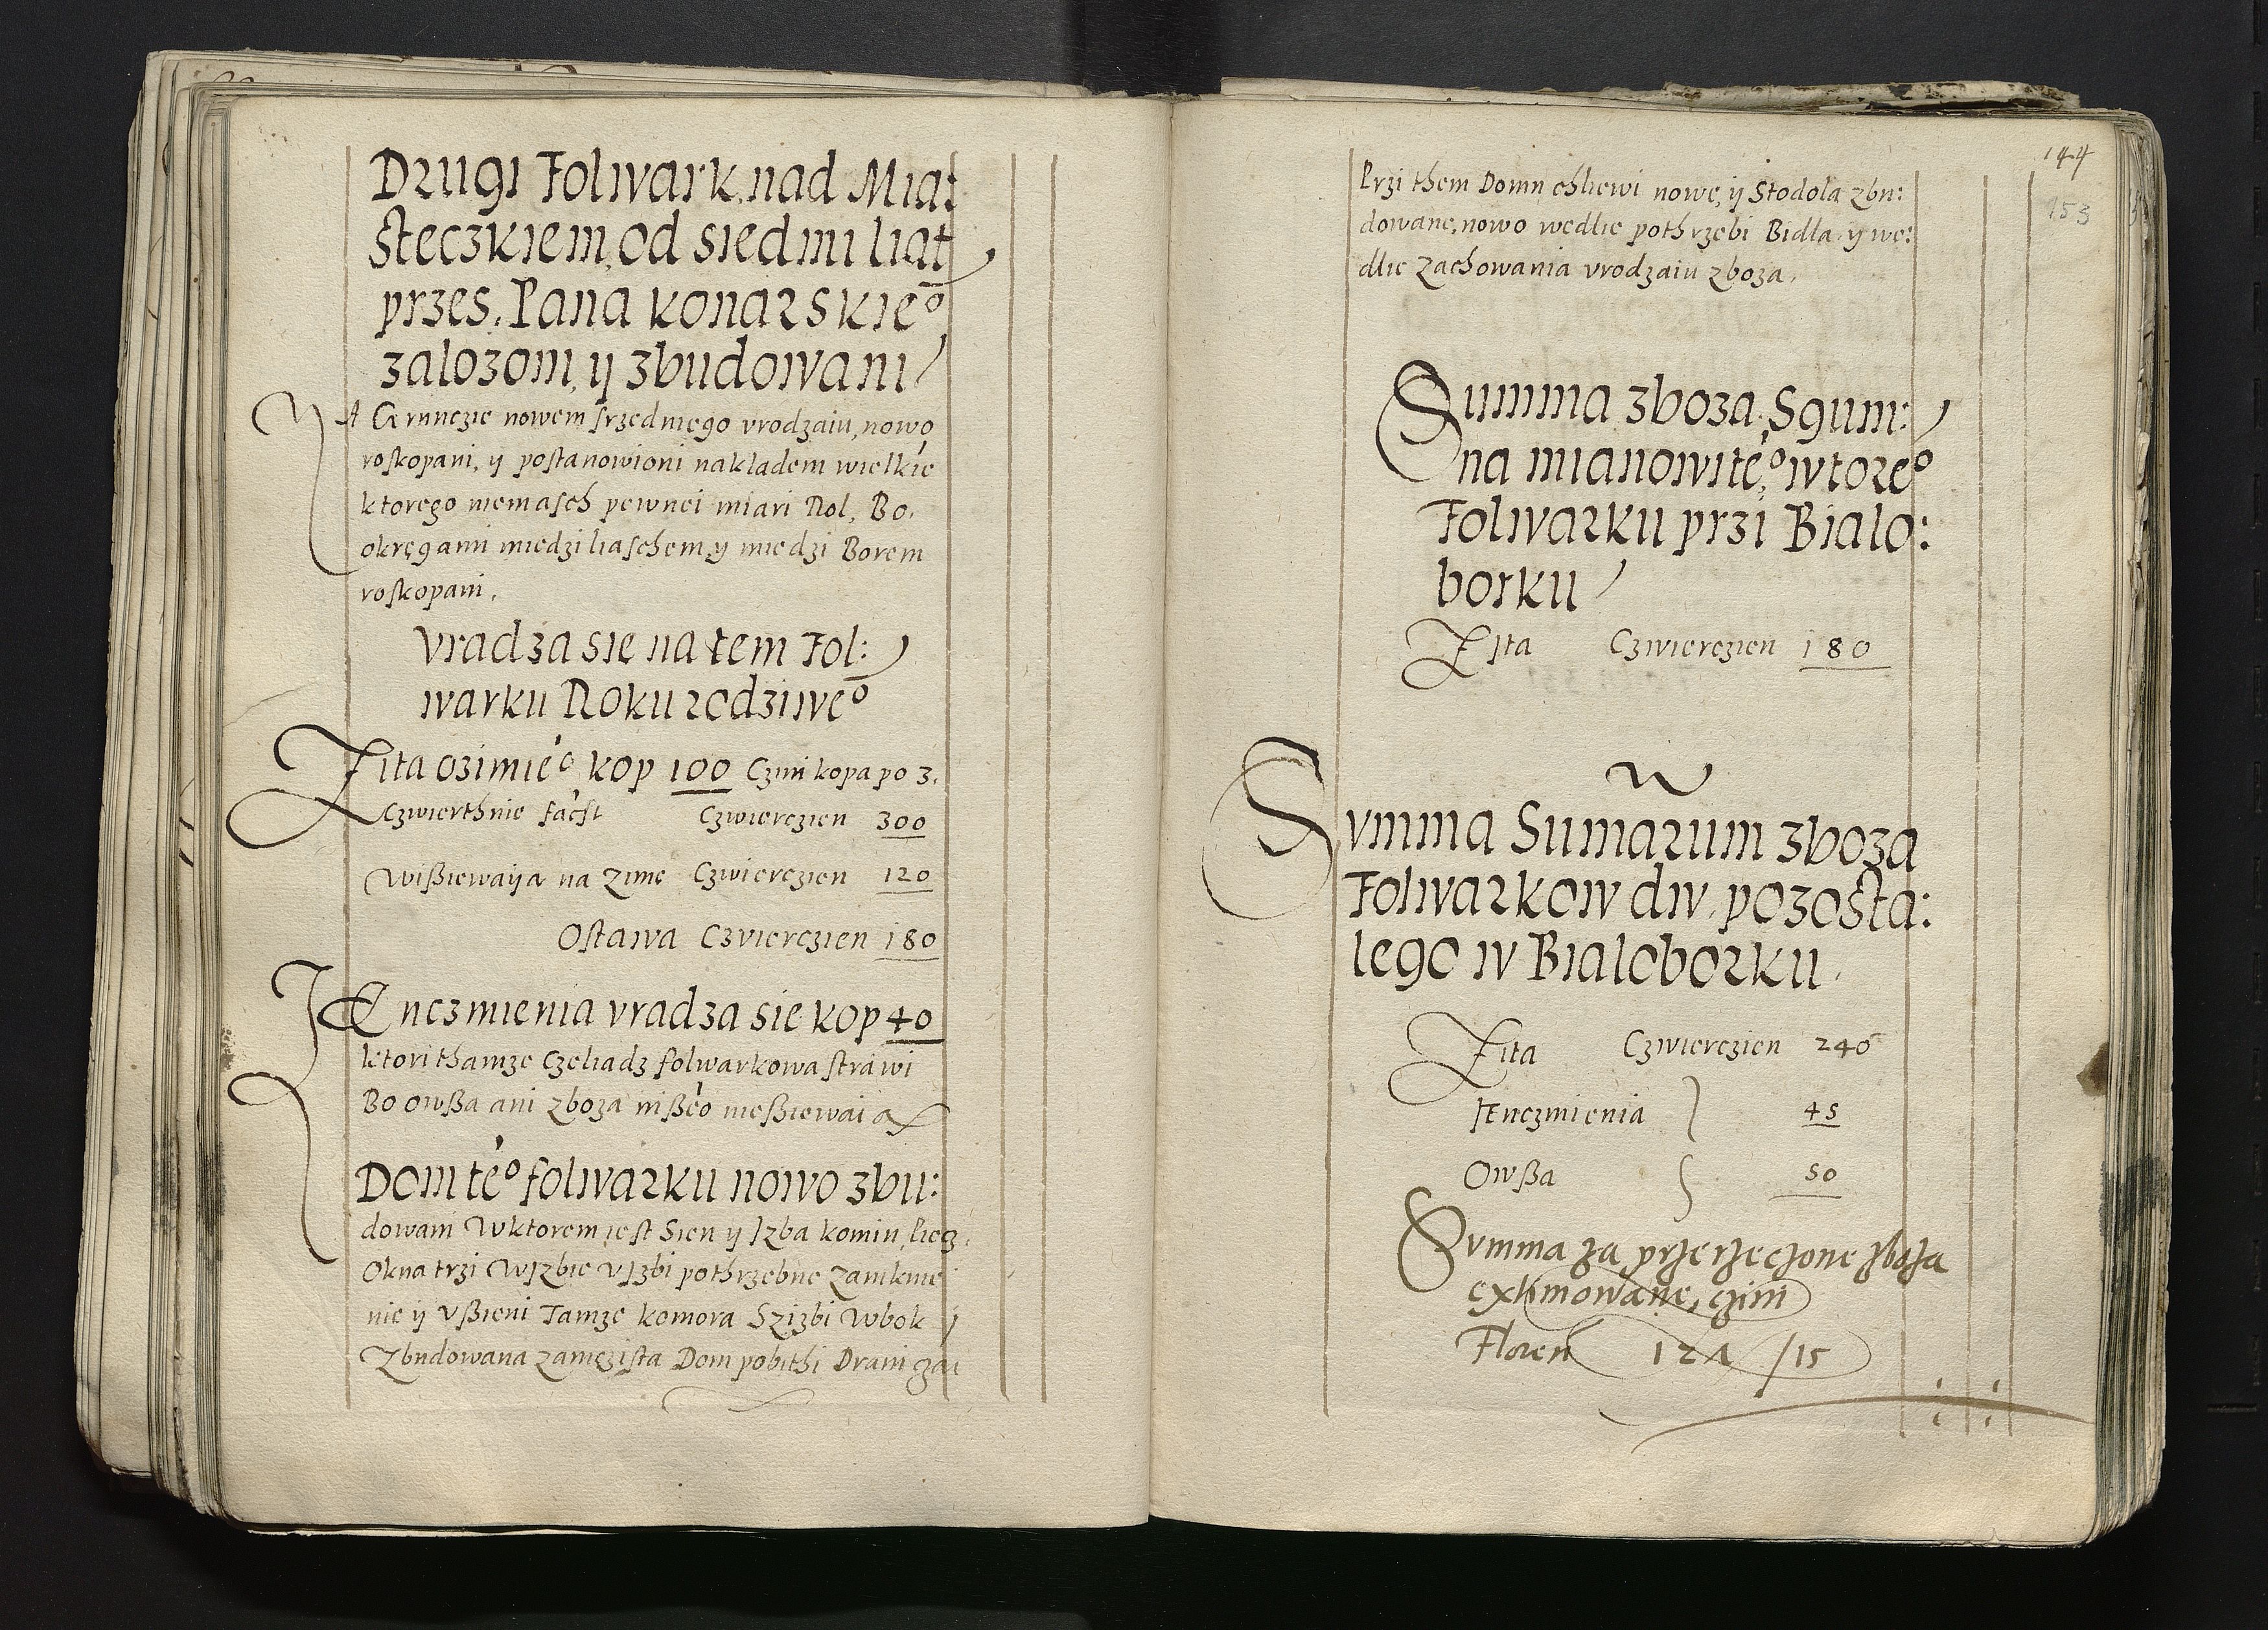 Drugi Folwark nad Mia:
steczkiem, od siedmi liat
przes, Pana konarskieº
zalozoni, ij zbudowani
NA Grunczie nowem srzedniego vrodzaiu, nowo
roskopani, ij postanowioni nakladem wielkie
ktorego niemasch pewnei miari Rol, Bo.
okręgami miedzi liaschem ij miedzi Borem
roskopani,
Vradza się na tem Fol:
warku Roku rodziweº
Zita ozimieº kop 100 Czini kopa po 3.
Czwierthnie facst Czwierczien 300
Wißiewaija na zimę Czwierczien 120
Ostawa Czwierczien 180
JEnczmienia vradza sie kop 40
ktori thamze Czeliadz folwarkowa strawi
Bo owßa ani zboza nißeo nießiewaia
Dom teº folwarku nowo zbu:
dowani Wktorem iest Sien ij Izba komin, Piecz,
Okna trzi WIzbie V Izbi pothrzebne zamknie
nie ij Vßieni Tamze komora Szizbi Wbok
Zbudowana zamczista Dom pobithi Drani
144
153
Przi them Domu chliewi nowe, ij Stodola zbu:
dowane, nowo wedlie pothrzebi Bidla ij we:
dlie zachowania vrodzaiu zboza.
Summa zboza Sgum:
na mianowiteº, wtoreº
Folwarku przi Bialo:
borku
Zita Czwierczien 180
W
Svmma Sumarum zboza
Folwarkow dw, pozosta:
lego w Bialoborku.
Zita Czwierczien 240
JEnczmienia 45
Owßa 50
Svmma za przerzeczone zboza
extimowane, czini
Floren 121 / 15